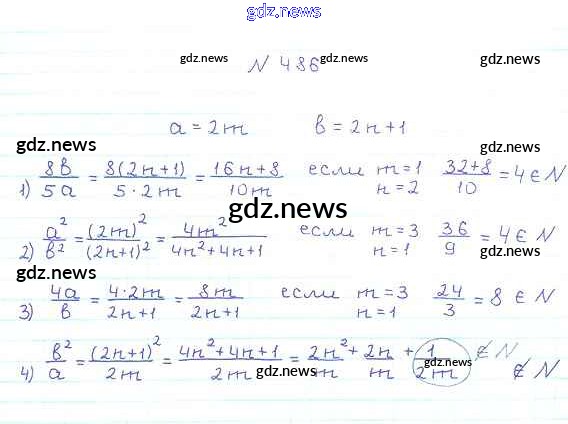 gdz.news
gdz.news
gdz.news № 486 gdz.news gdz.news
a = 2m b = 2n+1
gdz.news gdz.news
1) 8b/5a = 8(2n+1)/(5·2m) = (16n+8)/10m если m=1 n=2 (32+8)/10 = 4 ∈ N
gdz.news
2) a²/b² = (2m)²/(2n+1)² = 4m²/(4n²+4n+1) если m=3 n=1 36/9 = 4 ∈ N
gdz.news gdz.news
3) 4a/b = 4·2m/(2n+1) = 8m/(2n+1) если m=3 n=1 24/3 = 8 ∈ N
gdz.news
4) b²/a = (2n+1)²/2m = (4n²+4n+1)/2m = 2n²/m + 2n/m + 1/2m ∉ N ∉ N
gdz.news gdz.news